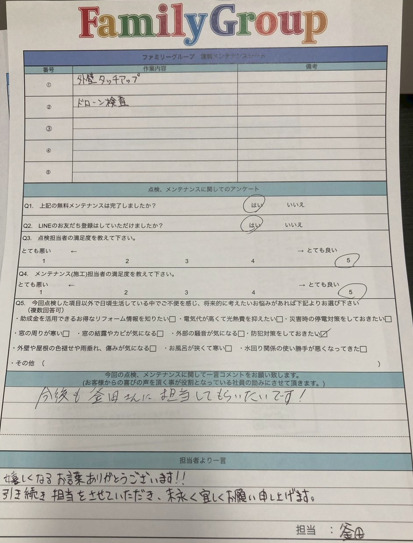 FamilyGroup
ファミリーグループ
番号 作業内容 備考
① 外壁タッチアップ
② ドローン検査
③
④
⑤
点検、メンテナンスに関してのアンケート
Q1. 上記の無料メンテナンスは完了しましたか? はい いいえ
Q2. LINEのお友だち登録はしていただけましたか? はい いいえ
Q3. 点検担当者の満足度を教えて下さい。
とても悪い ← → とても良い
1 2 3 4 5
Q4. メンテナンス(施工)担当者の満足度を教えて下さい。
とても悪い ← → とても良い
1 2 3 4 5
Q5. 今回点検した項目以外で日頃生活している中でご不便を感じ、将来的に考えたいお悩みがあれば下記よりお選び下さい
(複数回答可)
・助成金を活用できるお得なリフォーム情報を知りたい□ ・電気代が高くて光熱費を抑えたい□ ・災害時の停電対策をしておきたい□
・窓の周りが寒い□ ・窓の結露やカビが気になる□ ・外部の騒音が気になる□ ・防犯対策をしておきたい☑
・外壁や屋根の色褪せや雨垂れ、傷みが気になる□ ・お風呂が狭くて寒い□ ・水回り関係の使い勝手が悪くなってきた□
・その他 ( )
今回の点検、メンテナンスに関して一言コメントをお願い致します。
(お客様からの喜びの声を頂く事が役割となっている社員の励みにさせて頂きます。)
今後も釜田さんに担当してもらいたいです!
担当者より一言
嬉しくなるお言葉ありがとうございます!!
引き続き担当をさせていただき、末永く宜しくお願い申し上げます。
担当 : 釜田